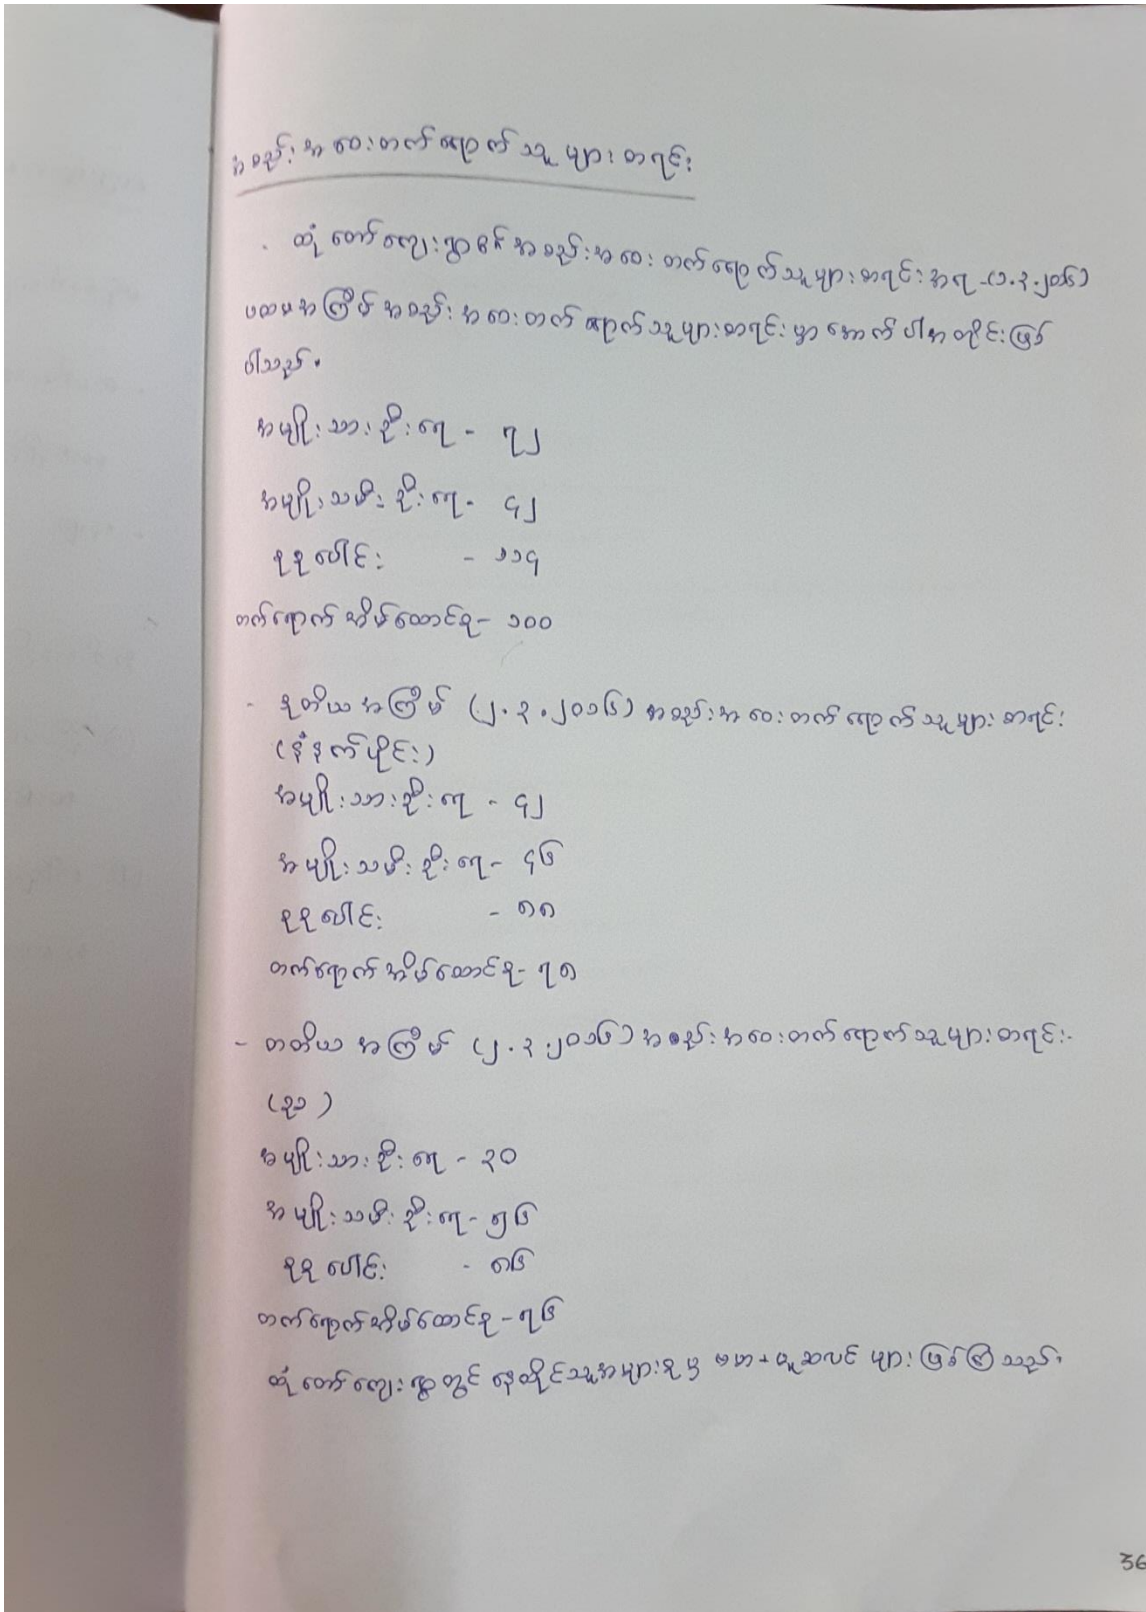 အစည်းအဝေးတက်ရောက်သူများစာရင်း
ထုံတော်ကျေးရွာ၏ အစည်းအဝေးတက်ရောက်သူများစာရင်းအရ - (၁.၃.၂၀၁၆)
ပထမအကြိမ် အစည်းအဝေးတက်ရောက်သူများစာရင်းမှာ အောက်ပါအတိုင်းဖြစ်
ပါသည်။
အမျိုးသားဦးရေ - ၇၂
အမျိုးသမီးဦးရေ - ၄၂
စုစုပေါင်း - ၁၁၄
တက်ရောက်အိမ်ထောင်စု - ၁၀၀
- ဒုတိယအကြိမ် (၂.၃.၂၀၁၆) အစည်းအဝေးတက်ရောက်သူများစာရင်း
(နံနက်ပိုင်း)
အမျိုးသားဦးရေ - ၄၂
အမျိုးသမီးဦးရေ - ၄၆
စုစုပေါင်း - ၈၈
တက်ရောက်အိမ်ထောင်စု - ၇၈
- တတိယအကြိမ် (၂.၃.၂၀၁၆) အစည်းအဝေးတက်ရောက်သူများစာရင်း -
(ည)
အမျိုးသားဦးရေ - ၃၀
အမျိုးသမီးဦးရေ - ၅၆
စုစုပေါင်း - ၈၆
တက်ရောက်အိမ်ထောင်စု - ၇၆
ထုံတော်ကျေးရွာတွင် နေထိုင်သူအများစုမှ ဗမာ + ယူဆလင် များဖြစ်ကြသည်။
36